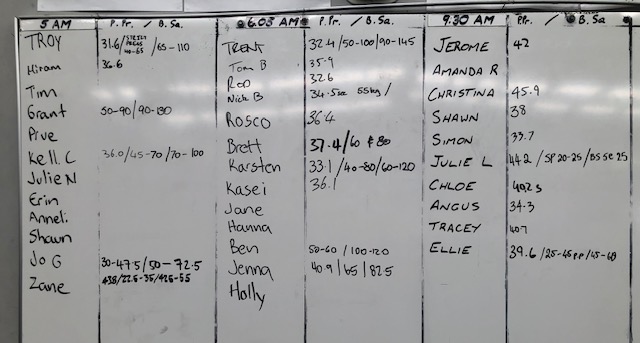 5 AM P.Pr. / B.Sa. 6.03 AM P.Pr. / B.Sa. 9.30 AM P.Pr. / B.Sa
TROY 31.6/STRICT PRESS 40-65/65-110
Hiram 36.6
Tim
Grant 50-90/90-130
Prue
Kell.C 36.0/45-70/70-100
Julie N
Erin
Anneli
Shawn
Jo G 30-47.5/50-72.5
Zane
TRENT 32.4/50-100/90-145
Tom B 35.9
Rod 32.6
Nick B 34.5sec 55kg/
Rosco 36.4
Brett 37.4/60 & 80
Karsten 33.1/40-80/60-120
Kasei 36.1
Jane
Hanna
Ben 50-60/100-120
Jenna 40.9/65/82.5
Holly
JEROME 42
AMANDA R
CHRISTINA 45.9
SHAWN 38
SIMON 33.7
JULIE L 44.2/SP 20-25/BS SE 25
CHLOE 40.2 s
ANGUS 34.3
TRACEY 40.7
ELLIE 39.6/25-45 PP/45-68